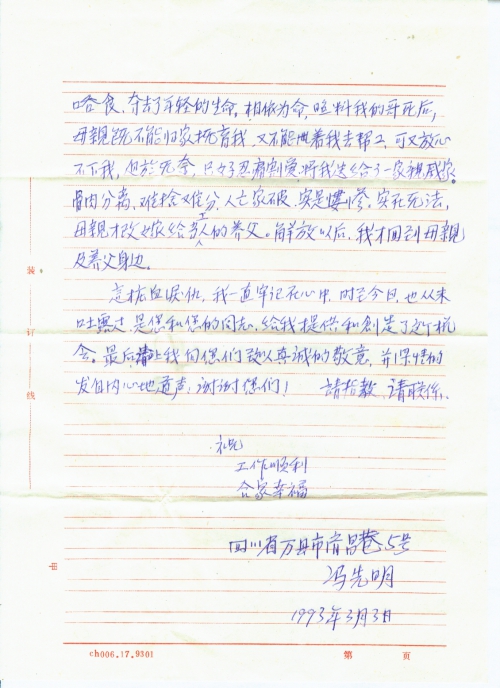 啮食,夺去了年轻的生命,相依为命,照料我的哥死后,
母亲既不能归家抚育我,又不能带着我去帮工,可又放心
不下我,迫于无奈,只好忍痛割爱将我送给了一家亲戚家。
骨肉分离,难舍难分,人亡家破,实是凄惨。实在无法,
母亲才改嫁给工人的养父。解放以后,我才回到母亲
及养父身边。
这桩血泪仇,我一直牢记在心中,时至今日,也从未
吐露过,是您和您的同志,给我提供和创造了这个机
会。最后请让我向您们致以真诚的敬意,并深情的
发自内心地道声:谢谢您们! 请指教,请联系。
祝
工作顺利
合家幸福
四川省万县市 5号
冯先明
1993年3月3日
装
订
线
ch006.17.9301
第 页